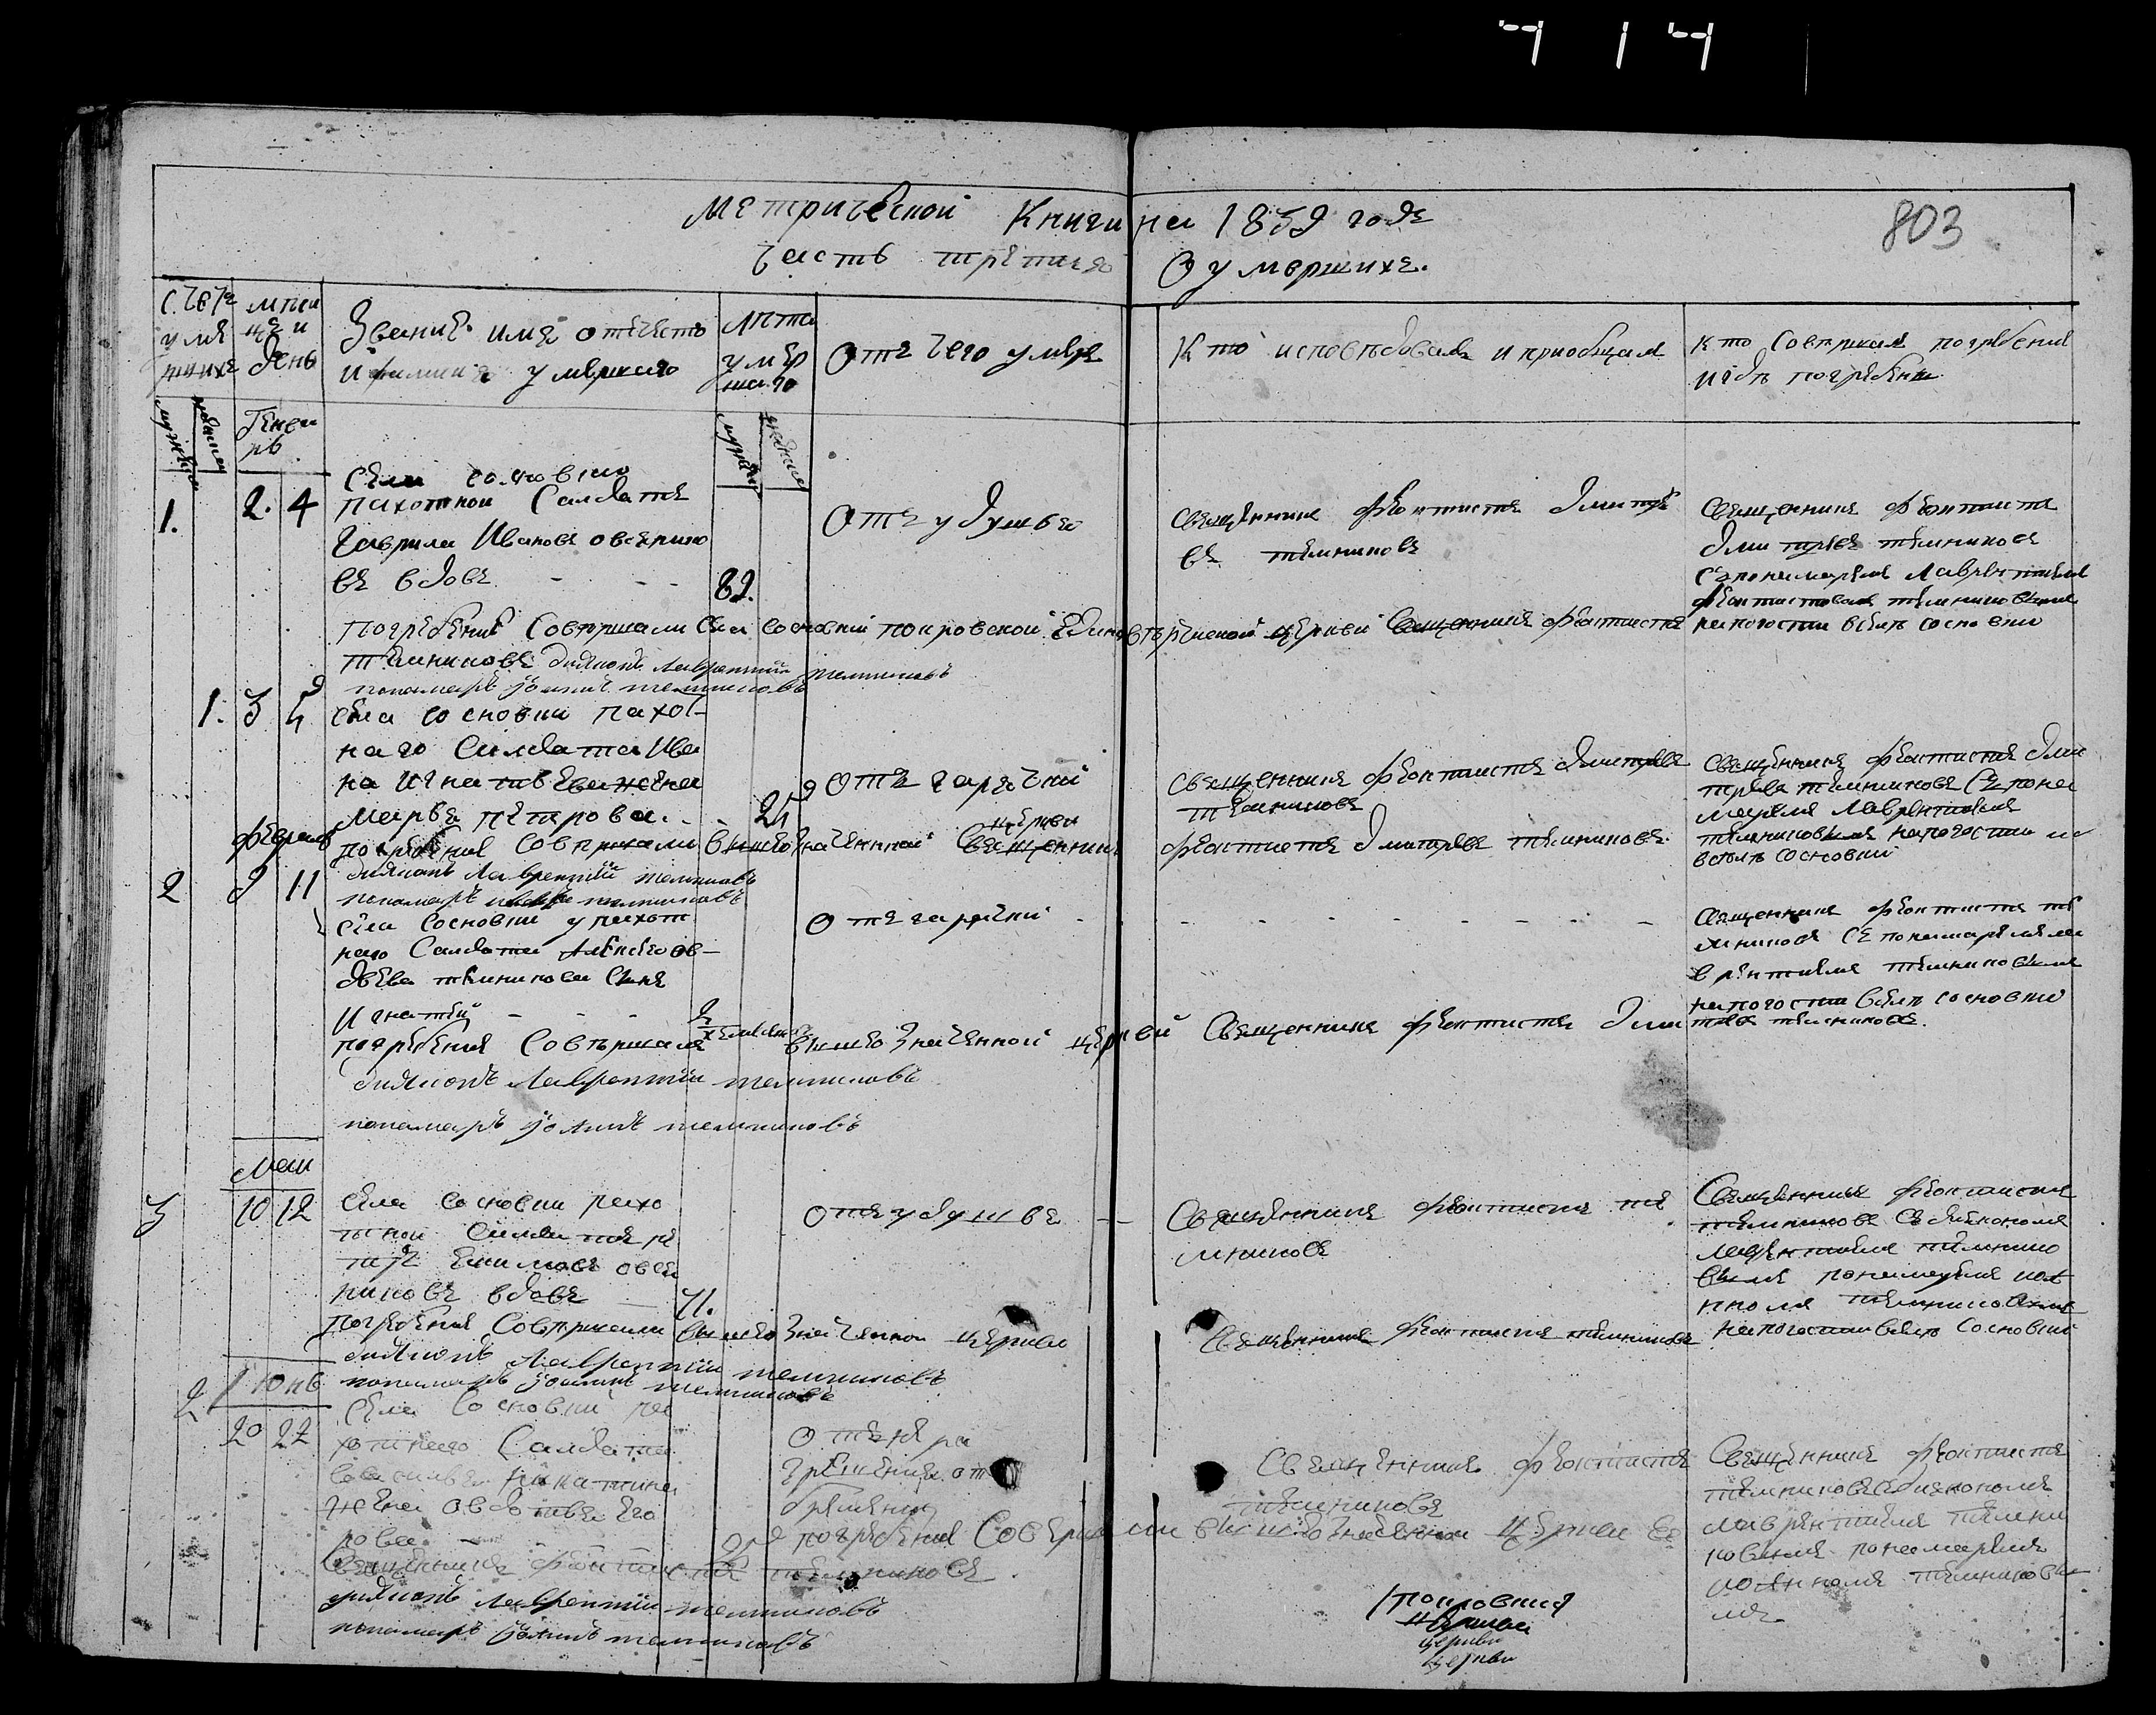 803
Метрической Книги на 1859 годъ
Часть третия О умершихъ.
Звание имя отечество
и фамилия умершаго
Лѣта
умер
шаго
Отъ чего умре
Кто исповѣдовалъ и приобщалъ
Кто совершал погребение
и гдѣ погребен
мѣся
цъ и
день
Генва
рь
1.
2. 4
Села Сосновки
пахотной Салдатъ
Гаврила Ивановъ Овсянико
въ вдовъ - - -
89.
Отъ удушья
Священникъ Феоктистъ Дмитре
въ Темниковъ
Священникъ Феоктистъ
Дмитревъ Темниковъ
с понамаремъ Лаврентиемъ
Феоктистовымъ Темниковымъ
на погости в селѣ Сосновки
Погребение Совершали Села Сосновки покровской Единоверческой церкви Священникъ Феоктистъ
Темниковъ диаконъ Лаврентий Темниковъ
понамарь Иоаннъ Темниковъ
1. 3 5
Села Сосновки пахот-
наго Салдата Ива
на Игнатьева жена
Марья Петрова. -
25
Отъ гарячки
Священникъ Феоктистъ Дмитревъ
Темниковъ
Священникъ Феоктистъ Дми
тревъ Темниковъ с пона
маремъ Лаврентиемъ
Темниковымъ на погости
в селѣ Сосновки
погребение Совершали вышеозначенной церкви Священникъ Феоктистъ Дмитревъ Темниковъ
диаконъ Лаврентий Темниковъ
понамарь Темниковъ
Февраль
2
9 11
Села Сосновки у пахот
наго Салдата Алексея Ов-
деева Темникова Сынъ
Игнатий - - -
Отъ гарячки - - - - - - - -
Священникъ Феоктистъ Те
мниковъ съ понамаремъ Ла
врентиемъ Темниковымъ
на погости в селѣ Сосновки
погребение Совершали вышеозначенной церкви Священникъ Феоктистъ Дми
тревъ Темниковъ.
диаконъ Лаврентий Темниковъ
понамарь Иоаннъ Темниковъ
Маи
3
10 12
Села Сосновки пахо
тной Салдатъ Пе
тръ Екимовъ Овся
никовъ вдовъ —
71.
Отъ удушья --
Священникъ Феоктистъ Те
мниковъ
Священникъ Феоктистъ
Темниковъ съ диакономъ
Лаврентиемъ Темнико
вымъ понамаремъ Иоа
нномъ Темниковымъ
на погости в селѣ Сосновки
погребение Совершали вышеозначенной церкви Священникъ Феоктистъ Темниковъ
диаконъ Лаврентий Темниковъ
понамарь Иоаннъ Темниковъ
2
Июнь
20 22
Села Сосновки па
хотнаго Салдата
Савелья Никитина
жена Овдотья Его
рова
Отъ не ра
зрешения от
бремени
Священникъ Феоктистъ
Темниковъ
Священникъ Феоктистъ
Темниковъ с диакономъ
Лаврентиемъ Темни
ковымъ понамаремъ
Иоанномъ Темниковы
мъ
погребение Совершали вышеозначенной церкви
Священникъ Феоктистъ Темниковъ.
диаконъ Лаврентий Темниковъ
понамарь Иоаннъ Темниковъ
Покровкия
церкви
церкви
церкви